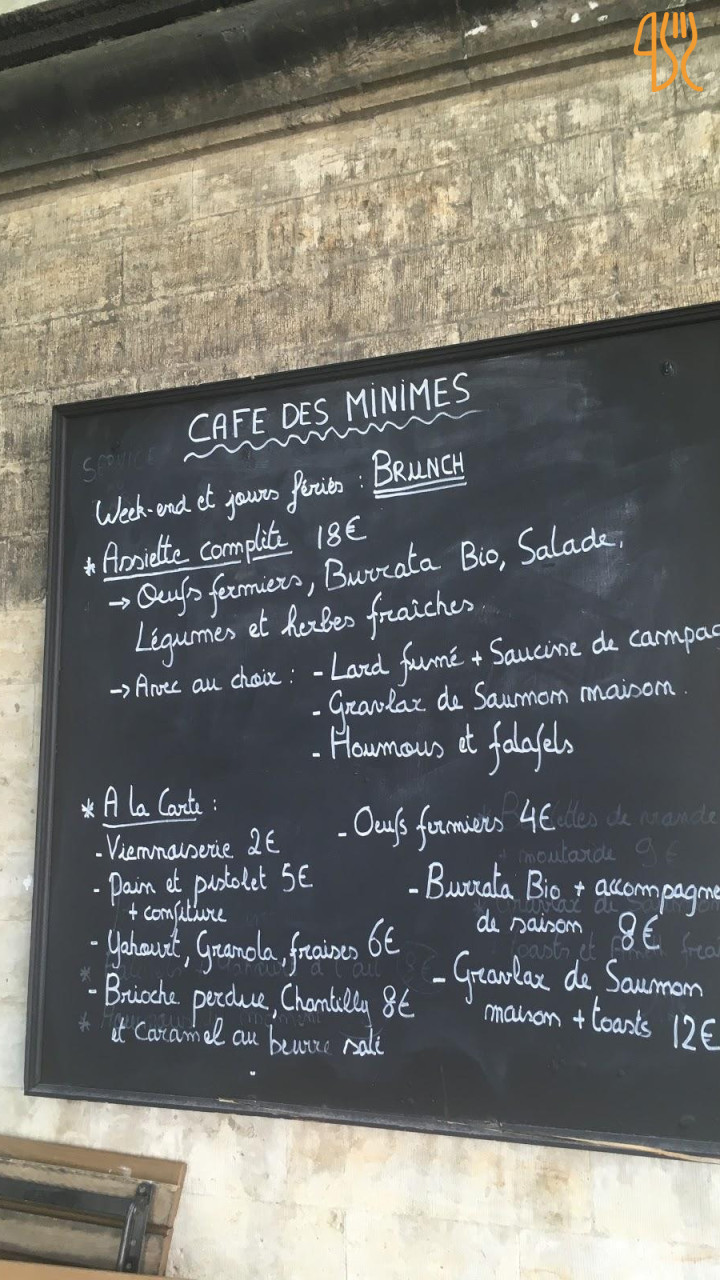 CAFE DES MINIMES
SERVICE
Week-end et jours fériés : BRUNCH
* Assiette complète 18€
→ Oeufs fermiers, Burrata Bio, Salade,
Légumes et herbes fraîches
→ Avec au choix : - Lard fumé + Saucine de campag
- Gravlax de Saumon maison.
- Houmous et falafels
* A la Carte :
- Viennoiserie 2€
- Pain et pistolet 5€
+ confiture
- Yahourt, Granola, fraises 6€
- Brioche perdue, Chantilly 8€
et caramel au beurre salé
- Oeufs fermiers 4€
- Burrata Bio + accompagne
de saison 8€
- Gravlax de Saumon
maison + toasts 12€
+ moutarde 9€